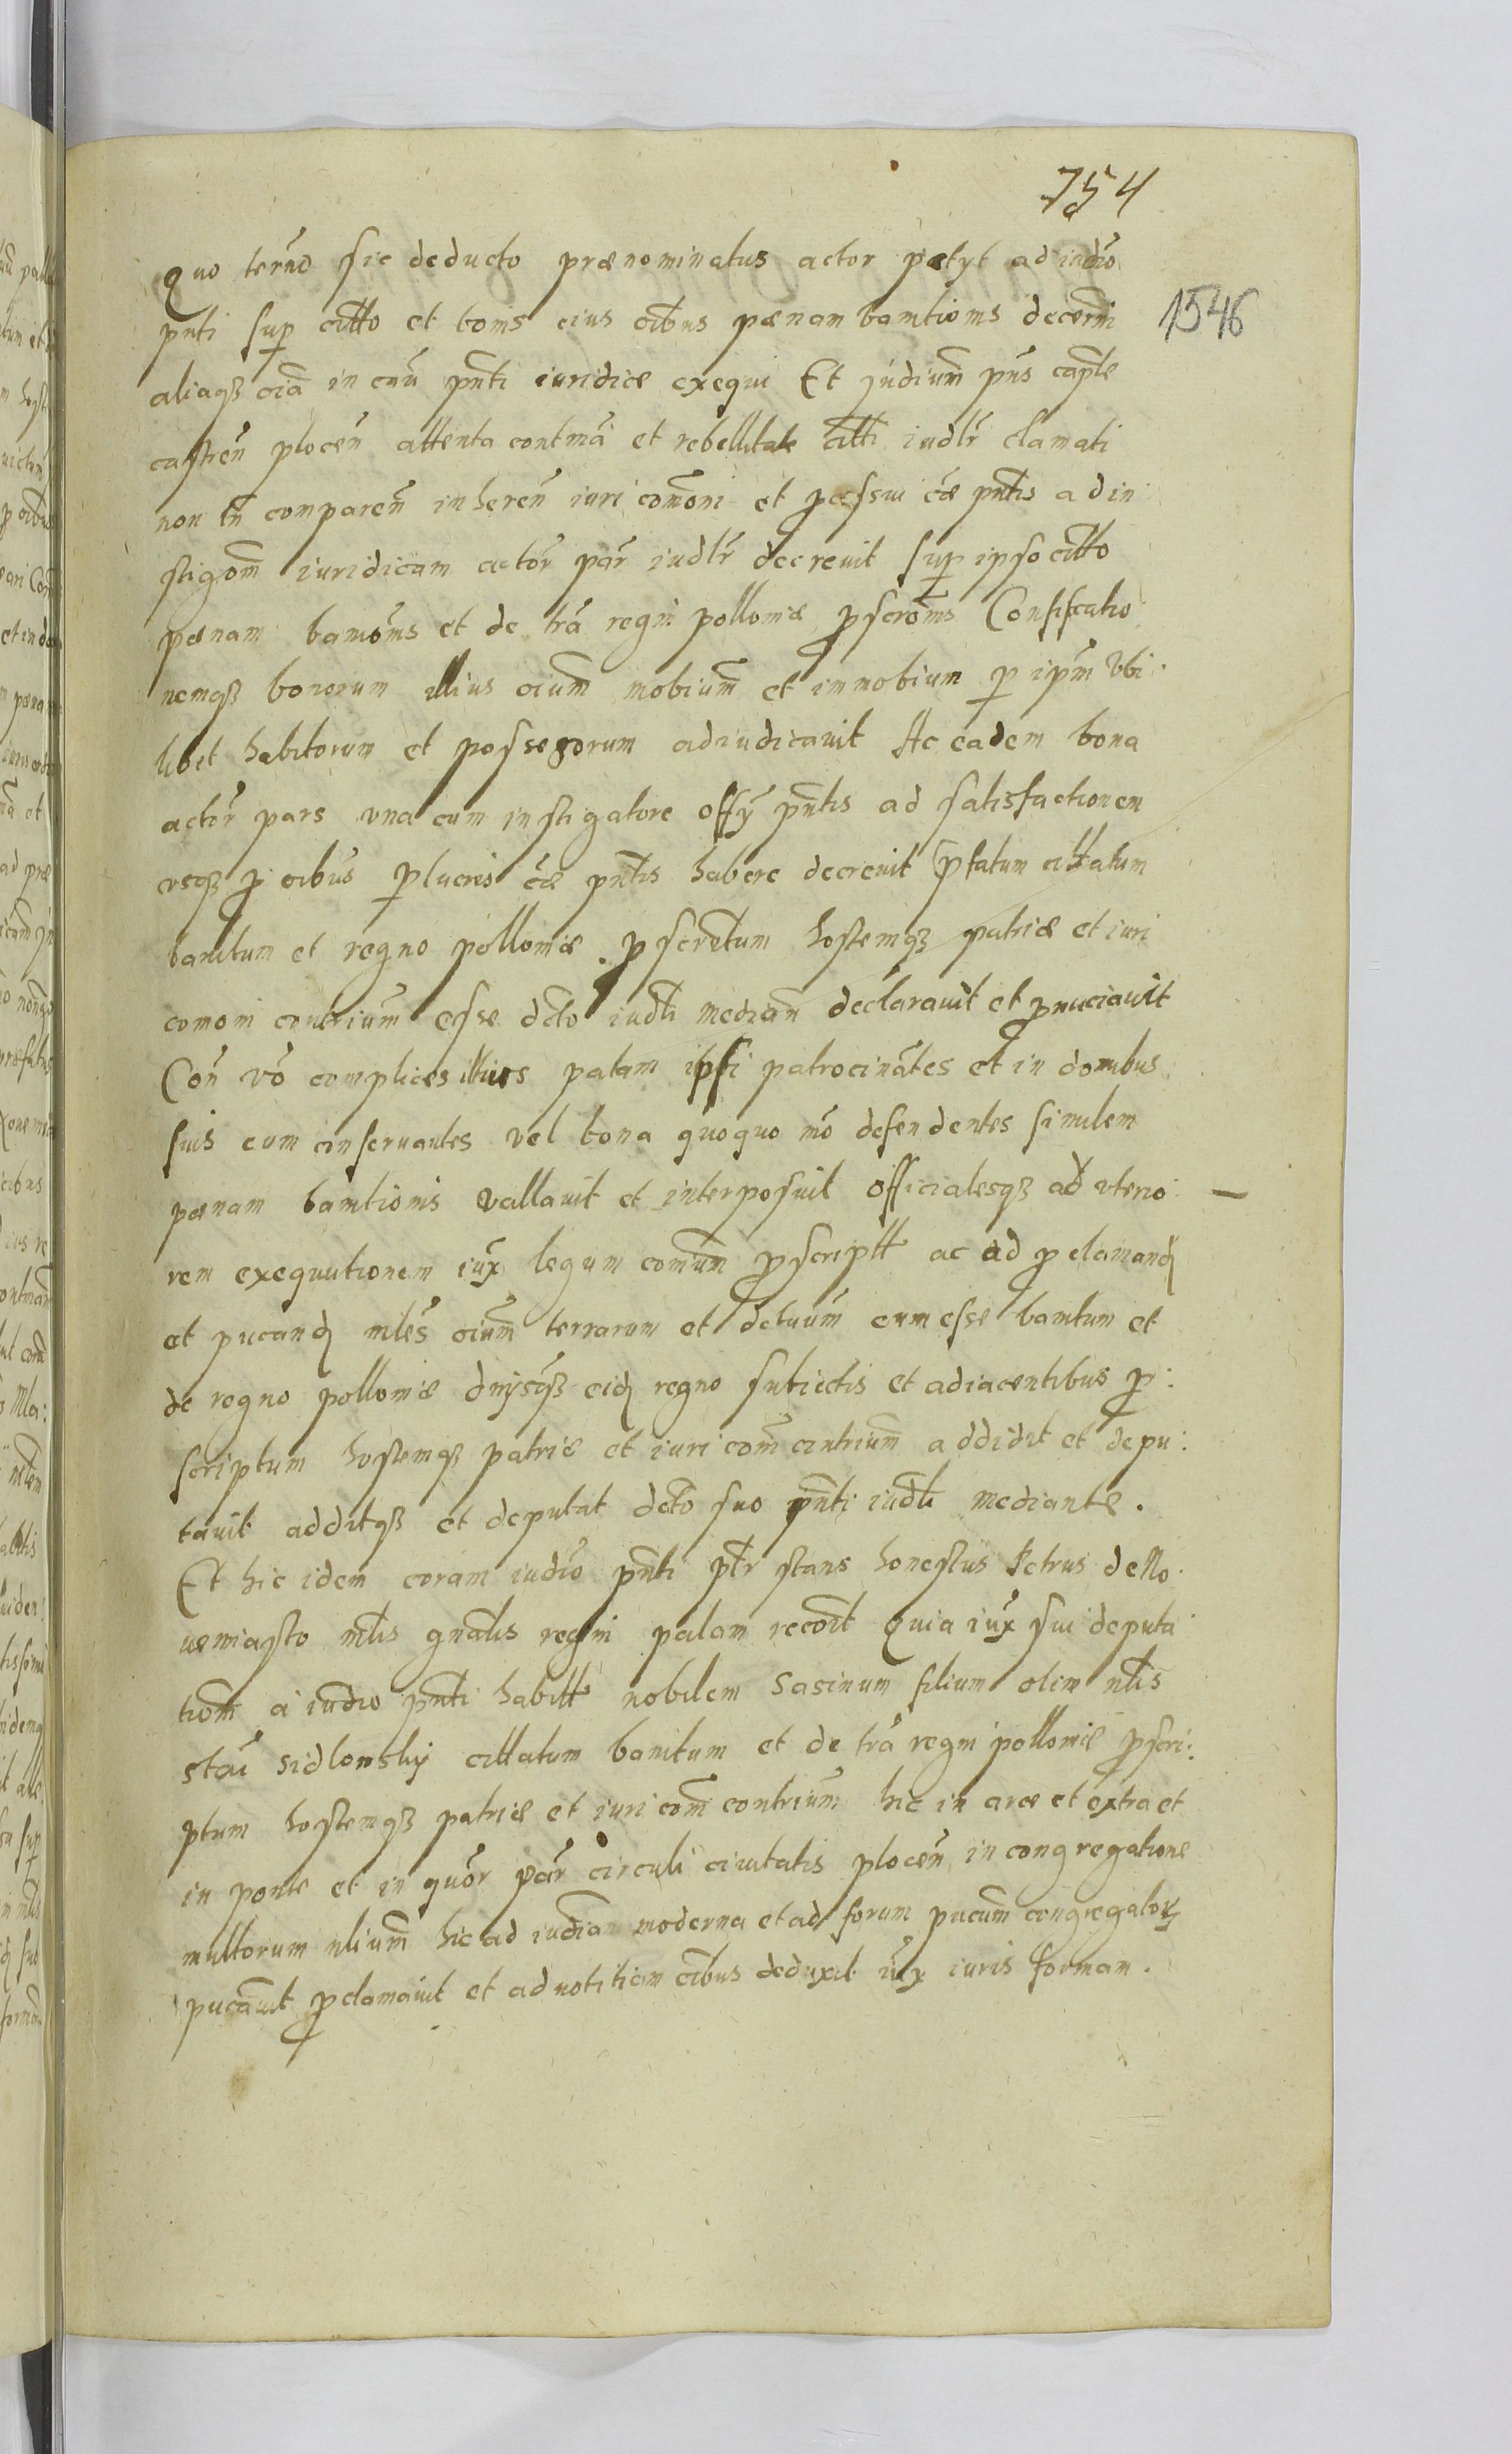 754
Quo termo sic deducto prænominatus actor petyt ad iudio
1546
pnti sup citto et bonis eius oibus pænam banitionis decerni
aliaqz oia in cau pnti iuridice exequi Et Judium pns capte
castren plocen attenta contmai et rebellitate citti iudlr clamati
non tn comparen inheren iuri comoni et pcessui cæ pntis ad in
stigom iuridicam actor par iudlr decreuit sup ipso citto
pænam banioms et de tra regni polloniæ pscroms Confiscatio
nemqz bonorum illius oium mobium et immobium p ipm vbi:
libet habitorum et possessorum adiudicauit Ac eadem bona
actor pars vna cum instigatore offy pntis ad satisfactionem
vsqz p oibus plucris cæ pntis habere decreuit pfatum citatum
banitum et regno polloniæ pscretum hostemqz patriæ et iuri
comoni contrium esse dcto iudli median declarauit et pnuciauit
Con vo complices illius palam ipsi patrocinates et in domibus
suis eum conseruantes vel bona quoquo mo defendentes similem
pænam banitionis vallauit et interposuit officialesqz ad vterio:
rem exequutionem iux legum comum pscriptt ac ad pclamand
et pucand mles oium terrarum et detuum eum esse banitum et
de regno polloniæ dnysqz eid regno subiectis et adiacentibus p:
scriptum hostemqz patriæ et iuri com contrium addidit et depu:
tauit additqz et deputat dcto suo pnti iudli mediante.
Et hic idem coram iudio pnti ptr stans honestus Petrus de No
uemiasto mlis gnalis regni palam recoit Quia iux sui deputa
tiom a iudio pnti habitt nobilem Sasinum filium olim nlis
stai Sidlowsky citatum banitum et de tra regni polloniæ pscri:
ptum hostemqz patriæ et iuri com contrium hic in arce et extra et
in ponte et in quor par circuli ciuitatis plocen in congregatione
multorum nlium hic ad iudia moderna et ad forum pucum congregator
pucauit pclamauit et ad notitiam oibus deduxit iux iuris formam.